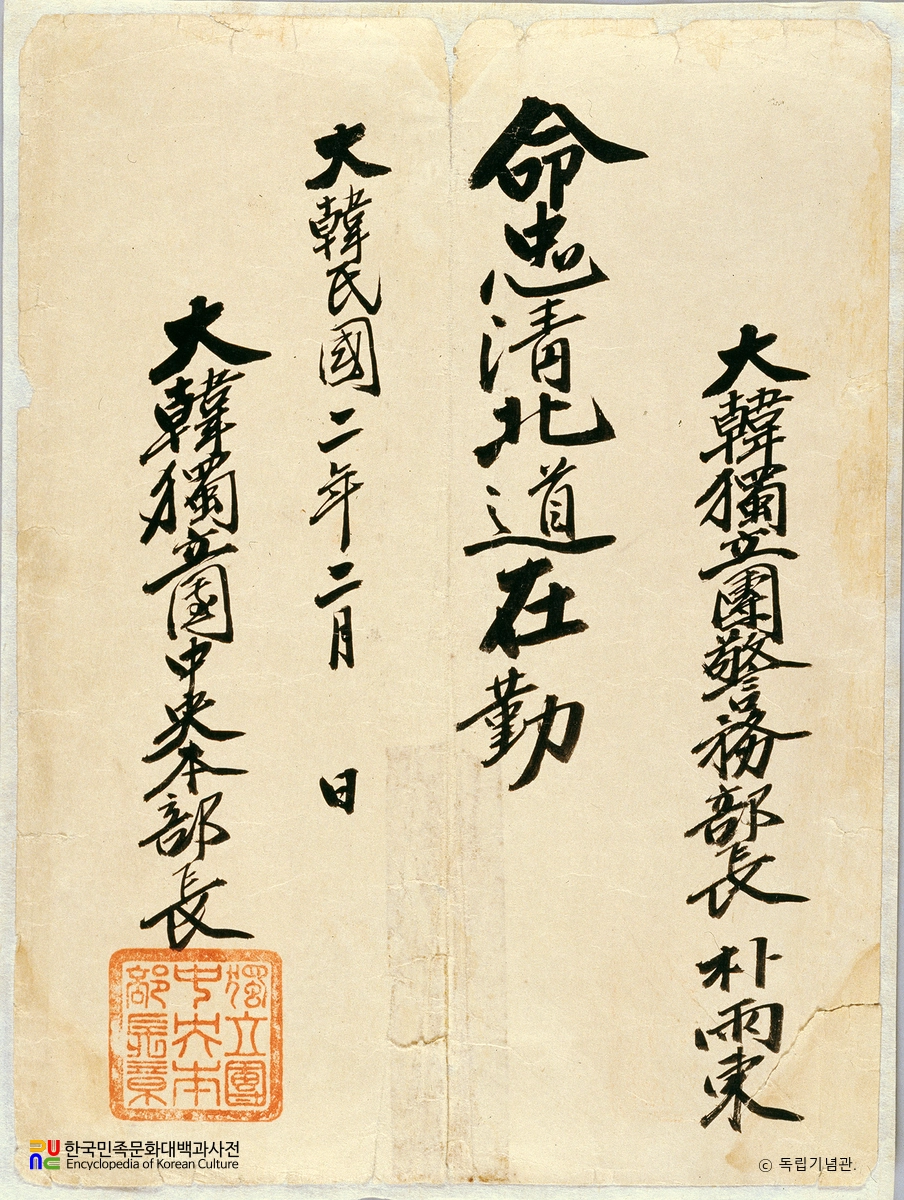 大韓獨立團警務部長 朴雨東
命忠清北道在勤
大韓民國二年二月 日
大韓獨立團中央本部長
獨立團
中央本
部長章
한국민족문화대백과사전
Encyclopedia of Korean Culture
ⓒ 독립기념관.